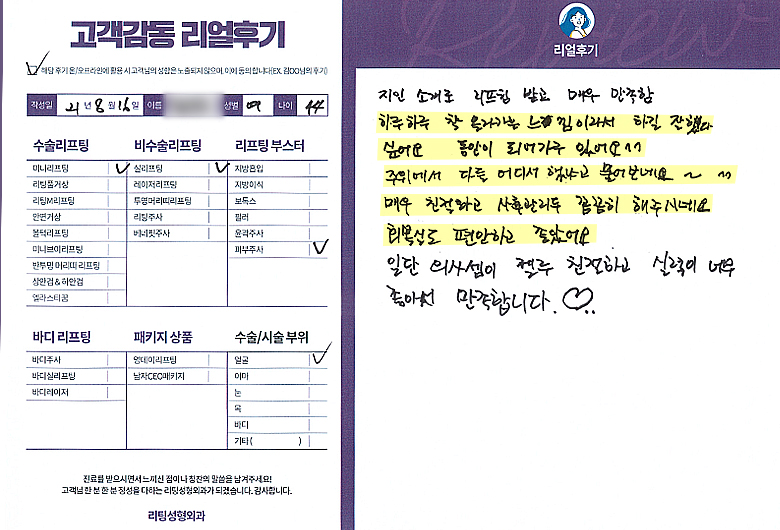 고객감동 리얼후기
해당 후기 온/오프라인에 활용 시 고객님의 성함은 노출되지 않으며, 이에 동의 합니다(EX. 김OO님의 후기)
작성일 21년 8월 16일 이름 성별 여 나이 44
수술리프팅
미니리프팅 ✓
리팅풀거상
리팅M리프팅
안면거상
볼턱리프팅
미니브이리프팅
반투명 머리띠 리프팅
상안검 & 하안검
엘라스티꿈
비수술리프팅
실리프팅 ✓
레이저리프팅
투명머리띠리프팅
리팅주사
베네핏주사
리프팅 부스터
지방흡입
지방이식
보톡스
필러
윤곽주사
피부주사 ✓
바디 리프팅
바디주사
바디실리프팅
바디레이저
패키지 상품
영데이리프팅
남자CEO패키지
수술/시술 부위
얼굴 ✓
이마
눈
목
바디
기타( )
진료를 받으시면서 느끼신 점이나 칭찬의 말씀을 남겨주세요!
고객님 한 분 한 분 정성을 다하는 리팅성형외과가 되겠습니다. 감사합니다.
리팅성형외과
Review
리얼후기
지인 소개로 리프팅 받고 매우 만족함
하루하루 착 올라가는 느낌이라서 하길 잘했다
싶어요 동안이 되어가구 있어요^^
주위에서 다들 어디서 했냐고 물어보네요 ~ ^^
매우 친절하고 사후관리두 꼼꼼히 해주시네요
회복실도 편안하고 좋았어요
일단 의사쌤이 젤루 친절하고 실력이 너무
좋아서 만족합니다. ♡..